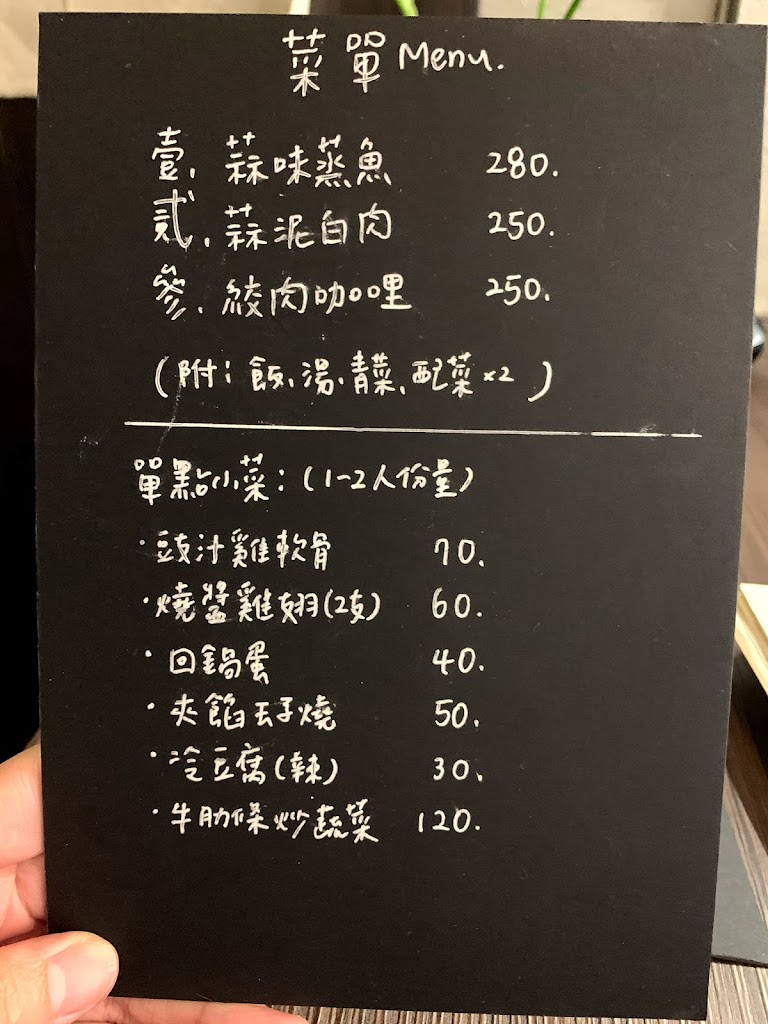 菜單 Menu.
壹、蒜味蒸魚 280.
貳、蒜泥白肉 250.
參、絞肉咖哩 250.
(附:飯、湯、青菜、配菜×2)
單點小菜:(1-2人份量)
·豉汁雞軟骨 70.
·燒醬雞翅(2支) 60.
·回鍋蛋 40.
·夾餡玉子燒 50.
·冷豆腐(辣) 30.
·牛肋條炒蔬菜 120.